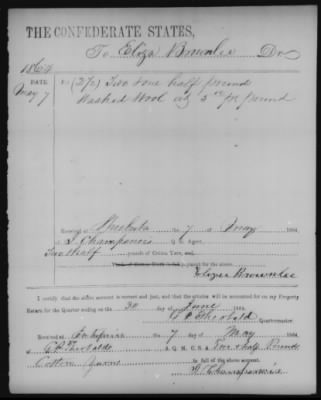 THE CONFEDERATE STATES,
To Eliza Brownlee Dr
1864
May 7 For (2½) Two & one half pounds
Washed Wool @ 3 00 per pound
Received at Shubuta 7 of May 1864,
of Q. M. Agent,
Two & half pounds of Cotton Yarn, and
in full for the above
Eliza Brownlee
I certify that the above account is correct and just, and that the articles will be accounted for on my Property
Return for the Quarter ending on the 30 day of June 1864.
Theobald Quartermaster.
Received at Enterprise 7 day of May 1864
of Theobald Q. M. C. S. A. Two & half Pounds
Cotton Yarn in full of the above account.